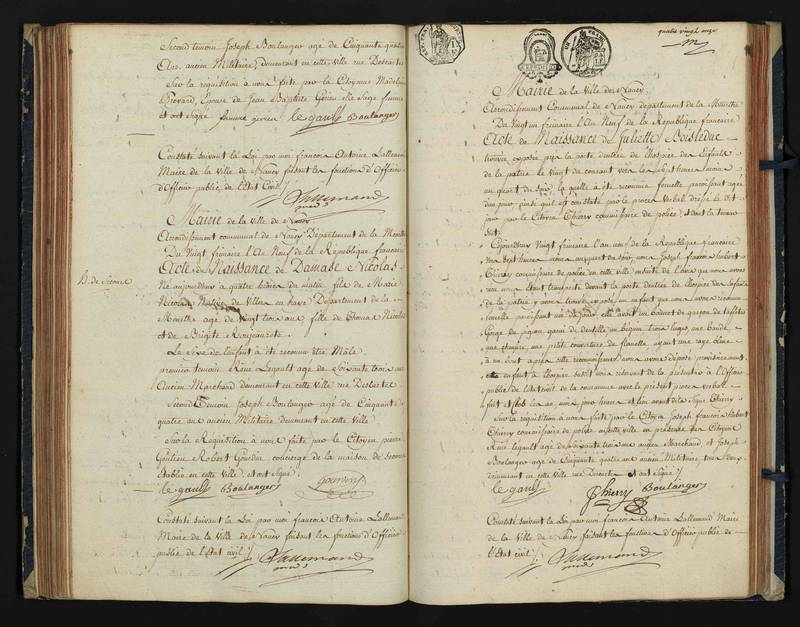 Second temoin Joseph Boulanger agé de Cinquante quatre
ans, ancien Militaire, demeurant en cette ville rue Descartes
Sur la réquisition à nous faite par la Citoyenne Madelaine
Epouse de Jean Baptiste Gérieu Sage femme
et ont signé femme gerieu le gault Boulanger
Constaté suivant la Loi par moi françois Antoine Lallemand
Maire de la Ville de Nancy faisant les fonctions d'Officier
d'Officier public de l'Etat Civil /.
Lallemand
maire
Mairie de la Ville de Nancy
Arrondissement communal de Nancy Département de la Meurthe
Du Vingt frimaire l'An Neuf de la République française
Acte de Naissance de Damase Nicolas
Né aujourdhuy à quatre heures du matin fils de Marie
Nicolas Native de en haye Département de la
Meurthe agée de vingt trois ans, fille de Thomas Nicolas
et de Brigite
Le Sexe de l'enfant à été reconnu être Mâle
premier temoin René Legault agé de Soixante trois ans
Ancien Marchand demeurant en cette Ville rue Descartes
Second Temoin Joseph Boulanger agé de Cinquante
quatre ans ancien Militaire demeurant en cette Ville
Sur la Réquisition à nous faite par le Citoyen pierre
Robert Gourdin concierge de la maison de secours
établie en cette Ville et ont Signé
le gault Boulanger
Constaté suivant la Loi par moi francois Antoine Lallemand
Maire de la Ville de Nancy faisant les fonctions d'Officier
public de l'Etat civil /.
Lallemand
maire
h. de Secours
quatre vingt onze
Mairie de la Ville de Nancy
Arrondissement Communal de Nancy departement de la Meurthe
Du Vingt frimaire l'An Neuf de la République francaise
Acte de Naissance de Juliette Boisleduc
trouvée exposée par la porte d'entrée de l'hospice des Enfants
de la patrie le Vingt du courant vers les sept heures moins
un quart du soir, laquelle à été reconnue femelle paroissant agée
d'un jour, ainsi qu'il est constaté par le procès verbal dressé le dit
jour par le Citoyen Thierry commissaire de police, et dont la teneur
suit.
Cejourdhuy Vingt frimaire l'an neuf de la République française
Vers sept heures moins du soir, nous Joseph francois hubert
Thierry commissaire de police en cette ville
étant transporté devant la porte d'entrée de l'hospice des Enfants
de la patrie y avons trouvé exposé, un enfant que nous avons reconnu
femelle paroissant né de jour, elle avoit un bonnet de
gorge de pigeon garni de dentelle un béguin, trois langes, une bande
une chemise, une petite couverture de flanelle ayant une raye bleue
à un bout après cette reconnoissance nous avons déposé provisoirement
cette enfant à l'hospice susdit nous réservant de la présenter à l'Officier
public de l'état civil de la commune avec le présent procès verbal
fait et clos les an, mois, jour, heure et lieu avant dits Signé Thierry
Sur la réquisition à nous faite par le Citoyen Joseph francois hubert
Thierry commissaire de police en cette ville en présence des Citoyens
René Legault agé de soixante trois ans ancien Marchand, et Joseph
Boulanger agé de Cinquante quatre ans ancien Militaire, tous deux
demeurant en cette ville rue Descartes et ont signé /.
le gault Thierry Boulanger
Constaté suivant la Loi par moi francois Antoine Lallemand Maire
de la Ville de Nancy faisant les fonctions d'Officier public de
l'Etat civil /.
Lallemand
maire